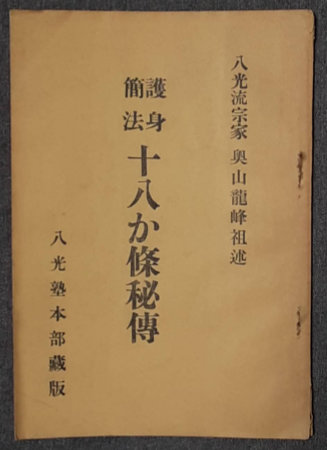 八光流宗家 奥山龍峰祖述
護身簡法 十八か條秘傳
八光塾本部藏版